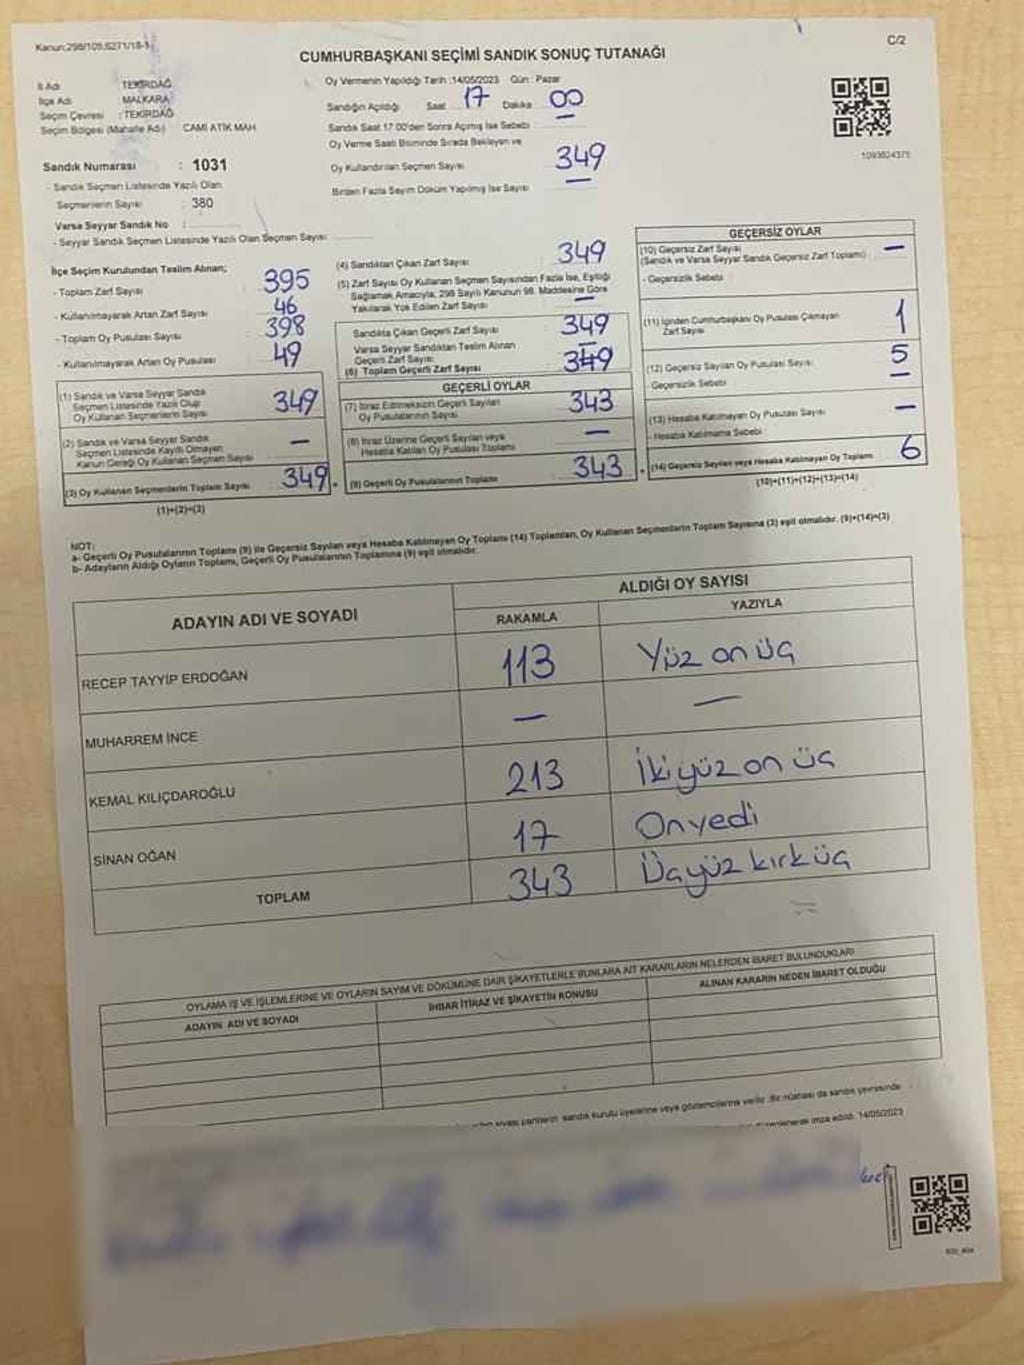 Kanun:298/105,6271/18-1
C/2
CUMHURBAŞKANI SEÇİMİ SANDIK SONUÇ TUTANAĞI
İl Adı : TEKİRDAĞ
İlçe Adı MALKARA
Seçim Çevresi : TEKİRDAĞ
Seçim Bölgesi (Mahalle Adı) CAMİ ATİK MAH
Sandık Numarası : 1031
- Sandık Seçmen Listesinde Yazılı Olan
Seçmenlerin Sayısı : 380
Varsa Seyyar Sandık No :
- Seyyar Sandık Seçmen Listesinde Yazılı Olan Seçmen Sayısı
Oy Vermenin Yapıldığı Tarih :14/05/2023 Gün : Pazar
Sandığın Açıldığı Saat 17 Dakika 00
Sandık Saat 17:00'den Sonra Açılmış İse Sebebi
Oy Verme Saati Bitiminde Sırada Bekleyen ve
Oy Kullandırılan Seçmen Sayısı 349
Birden Fazla Sayım Döküm Yapılmış İse Sayısı —
1093624375
İlçe Seçim Kurulundan Teslim Alınan;
- Toplam Zarf Sayısı 395
- Kullanılmayarak Artan Zarf Sayısı 46
- Toplam Oy Pusulası Sayısı 398
- Kullanılmayarak Artan Oy Pusulası 49
(1) Sandık ve Varsa Seyyar Sandık
Seçmen Listesinde Yazılı Olup
Oy Kullanan Seçmenlerin Sayısı 349
(2) Sandık ve Varsa Seyyar Sandık
Seçmen Listesinde Kayıtlı Olmayan
Kanun Gereği Oy Kullanan Seçmen Sayısı —
(3) Oy Kullanan Seçmenlerin Toplam Sayısı 349
(1)+(2)=(3)
(4) Sandıktan Çıkan Zarf Sayısı 349
(5) Zarf Sayısı Oy Kullanan Seçmen Sayısından Fazla İse, Eşitliği
Sağlamak Amacıyla, 298 Sayılı Kanunun 98. Maddesine Göre
Yakılarak Yok Edilen Zarf Sayısı —
Sandıkta Çıkan Geçerli Zarf Sayısı : 349
Varsa Seyyar Sandıktan Teslim Alınan
Geçerli Zarf Sayısı —
(6) Toplam Geçerli Zarf Sayısı 349
GEÇERLİ OYLAR
(7) İtiraz Edilmeksizin Geçerli Sayılan
Oy Pusulalarının Sayısı 343
(8) İtiraz Üzerine Geçerli Sayılan veya
Hesaba Katılan Oy Pusulası Toplamı —
(9) Geçerli Oy Pusulalarının Toplamı 343
GEÇERSİZ OYLAR
(10) Geçersiz Zarf Sayısı —
(Sandık ve Varsa Seyyar Sandık Geçersiz Zarf Toplamı)
- Geçersizlik Sebebi
(11) İçinden Cumhurbaşkanı Oy Pusulası Çıkmayan
Zarf Sayısı 1
(12) Geçersiz Sayılan Oy Pusulası Sayısı 5
- Geçersizlik Sebebi —
(13) Hesaba Katılmayan Oy Pusulası Sayısı —
- Hesaba Katılmama Sebebi
(14) Geçersiz Sayılan veya Hesaba Katılmayan Oy Toplamı 6
(10)+(11)+(12)+(13)=(14)
NOT:
a- Geçerli Oy Pusulalarının Toplamı (9) ile Geçersiz Sayılan veya Hesaba Katılmayan Oy Toplamı (14) Toplamları, Oy Kullanan Seçmenlerin Toplam Sayısına (3) eşit olmalıdır. (9)+(14)=(3)
b- Adayların Aldığı Oyların Toplamı, Geçerli Oy Pusulalarının Toplamına (9) eşit olmalıdır.
ADAYIN ADI VE SOYADI
ALDIĞI OY SAYISI
RAKAMLA YAZIYLA
RECEP TAYYİP ERDOĞAN 113 Yüz on üç
MUHARREM İNCE — —
KEMAL KILIÇDAROĞLU 213 İkiyüz on üç
SİNAN OĞAN 17 Onyedi
TOPLAM 343 Üçyüz kırk üç
OYLAMA İŞ VE İŞLEMLERİNE VE OYLARIN SAYIM VE DÖKÜMÜNE DAİR ŞİKAYETLERLE BUNLARA AİT KARARLARIN NELERDEN İBARET BULUNDUKLARI
ADAYIN ADI VE SOYADI İHBAR İTİRAZ VE ŞİKAYETİN KONUSU ALINAN KARARIN NEDEN İBARET OLDUĞU
siyasi partilerin sandık kurulu üyelerine veya gözlemcilerine verilir. Bir nüshası da sandık çevresinde
düzenlenerek imza edildi. 14/05/2023